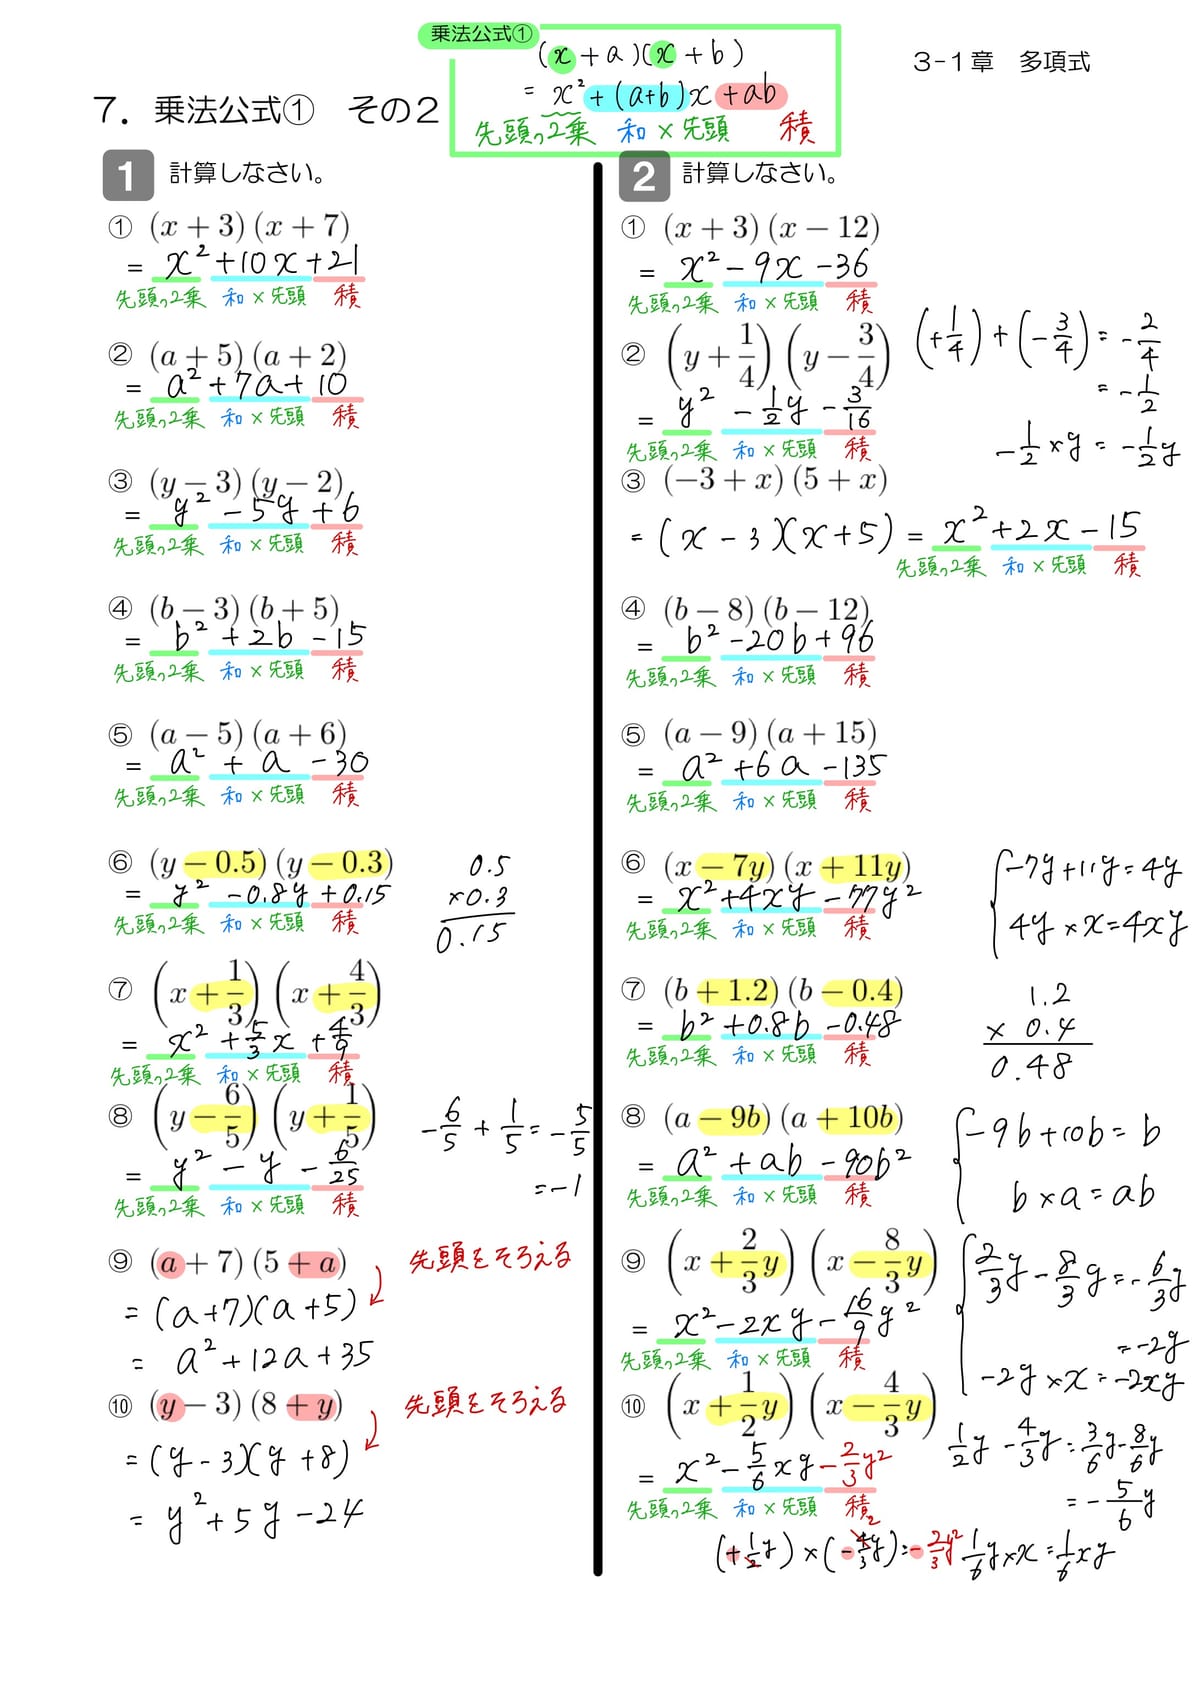 乗法公式①
(x+a)(x+b)
= x²+(a+b)x+ab
先頭の2乗 和×先頭 積
3-1章 多項式
7. 乗法公式① その2
1 計算しなさい。
① (x+3)(x+7)
= x²+10x+21
先頭の2乗 和×先頭 積
② (a+5)(a+2)
= a²+7a+10
先頭の2乗 和×先頭 積
③ (y−3)(y−2)
= y²−5y+6
先頭の2乗 和×先頭 積
④ (b−3)(b+5)
= b²+2b−15
先頭の2乗 和×先頭 積
⑤ (a−5)(a+6)
= a²+a−30
先頭の2乗 和×先頭 積
⑥ (y−0.5)(y−0.3)
= y²−0.8y+0.15
先頭の2乗 和×先頭 積
0.5
×0.3
0.15
⑦ (x+1/3)(x+4/3)
= x²+5/3x+4/9
先頭の2乗 和×先頭 積
⑧ (y−6/5)(y+1/5)
= y²−y−6/25
先頭の2乗 和×先頭 積
−6/5+1/5=−5/5
=−1
⑨ (a+7)(5+a)
先頭をそろえる
=(a+7)(a+5)
= a²+12a+35
⑩ (y−3)(8+y)
先頭をそろえる
=(y−3)(y+8)
= y²+5y−24
2 計算しなさい。
① (x+3)(x−12)
= x²−9x−36
先頭の2乗 和×先頭 積
② (y+1/4)(y−3/4)
= y²−1/2y−3/16
先頭の2乗 和×先頭 積
(+1/4)+(−3/4)=−2/4
=−1/2
−1/2×y=−1/2y
③ (−3+x)(5+x)
=(x−3)(x+5)= x²+2x−15
先頭の2乗 和×先頭 積
④ (b−8)(b−12)
= b²−20b+96
先頭の2乗 和×先頭 積
⑤ (a−9)(a+15)
= a²+6a−135
先頭の2乗 和×先頭 積
⑥ (x−7y)(x+11y)
= x²+4xy−77y²
先頭の2乗 和×先頭 積
−7y+11y=4y
4y×x=4xy
⑦ (b+1.2)(b−0.4)
= b²+0.8b−0.48
先頭の2乗 和×先頭 積
1.2
×0.4
0.48
⑧ (a−9b)(a+10b)
= a²+ab−90b²
先頭の2乗 和×先頭 積
−9b+10b=b
b×a=ab
⑨ (x+2/3y)(x−8/3y)
= x²−2xy−16/9y²
先頭の2乗 和×先頭 積
2/3y−8/3y=−6/3y
=−2y
−2y×x=−2xy
⑩ (x+1/2y)(x−4/3y)
= x²−5/6xy−2/3y²
先頭の2乗 和×先頭 積
1/2y−4/3y=3/6y−8/6y
=−5/6y
(+1/2y)×(−4/3y)=−2/3y² 1/6y×x=1/6xy
2